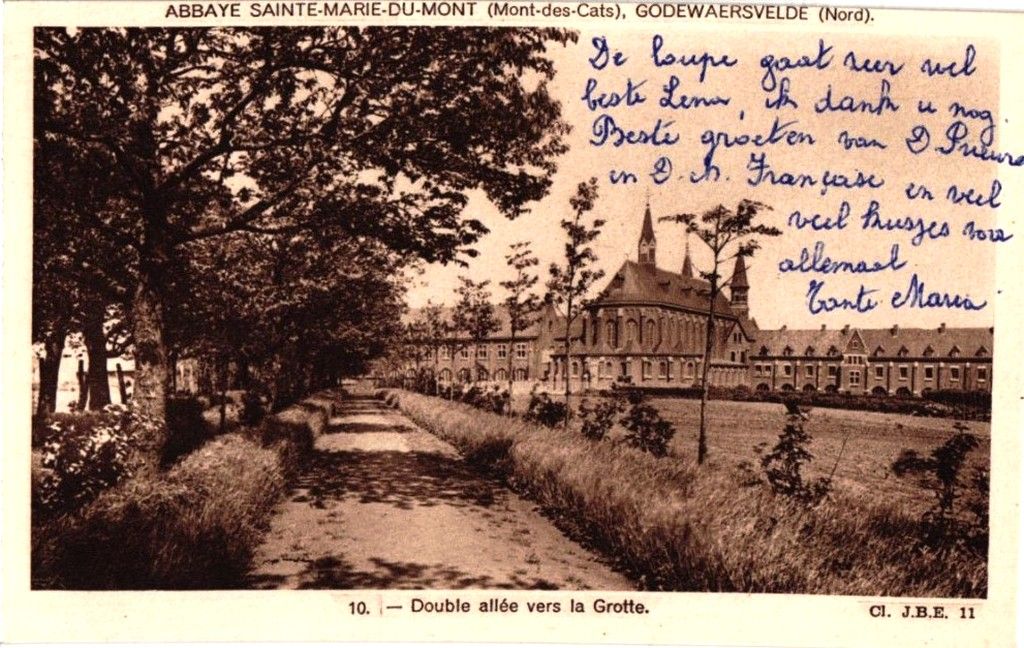 ABBAYE SAINTE-MARIE-DU-MONT (Mont-des-Cats), GODEWAERSVELDE (Nord).
De loupe gaat zeer wel
beste Lena, ik dank u nog
Beste groeten van D. Prieure
en D. M. Françoise en veel
veel kusjes voor
allemaal
Tante Maria
10. — Double allée vers la Grotte.
Cl. J.B.E. 11